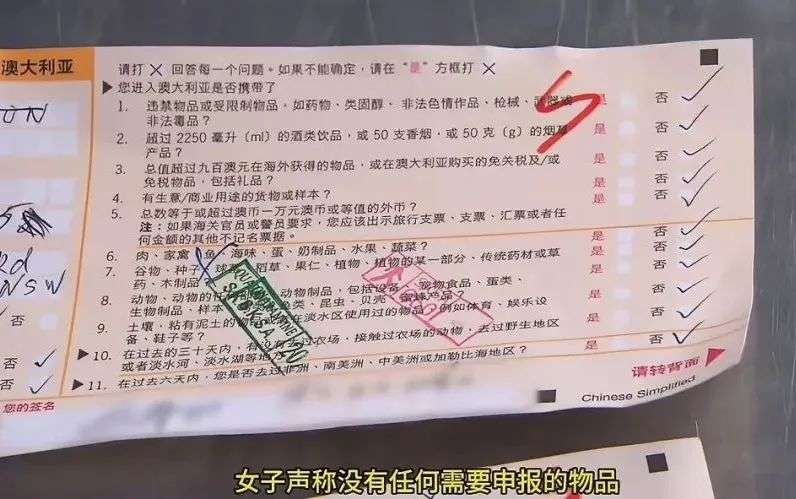 澳大利亚
请打 × 回答每一个问题。如果不能确定，请在“是”方框打 ×
▶您进入澳大利亚是否携带了
1. 违禁物品或受限制物品，如药物、类固醇、非法色情作品、枪械、
非法毒品？ 是 否
2. 超过 2250 毫升 (ml) 的酒类饮品，或 50 支香烟，或 50 克 (g) 的烟草
产品？ 是 否
3. 总值超过九百澳元在海外获得的物品，或在澳大利亚购买的免关税及/或
免税物品，包括礼品？ 是 否
4. 有生意/商业用途的货物或样本？ 是 否
5. 总数等于或超过澳币一万元澳币或等值的外币？ 是 否
注：如果海关官员或警员要求，您应该出示旅行支票、支票、汇票或者任
何金额的其他不记名票据。
6. 肉、家禽、鱼、海味、蛋、奶制品、水果、蔬菜？ 是 否
7. 谷物、种子、球 稻草、果仁、植物、植物的某一部分、传统药材或草
药、木制品？ 是 否
8. 动物、动物的 动物制品，包括设备、宠物食品、蛋类、
生物制品、样本 类、昆虫、贝壳、蜜蜂产品？ 是 否
9. 土壤，粘有泥土的物 在淡水区使用过的物品，例如体育、娱乐设
备、鞋子等？ 是 否
▶10. 在过去的三十天内， 去过农场，接触过农场的动物，去过野生地区
或者淡水河、淡水湖等地 是 否
▶11. 在过去六天内，您是否去过非洲、南美洲、中美洲或加勒比海地区？ 是 否
请转背面
Chinese Simplified
NSW
否
否
否
您的签名
女子声称没有任何需要申报的物品